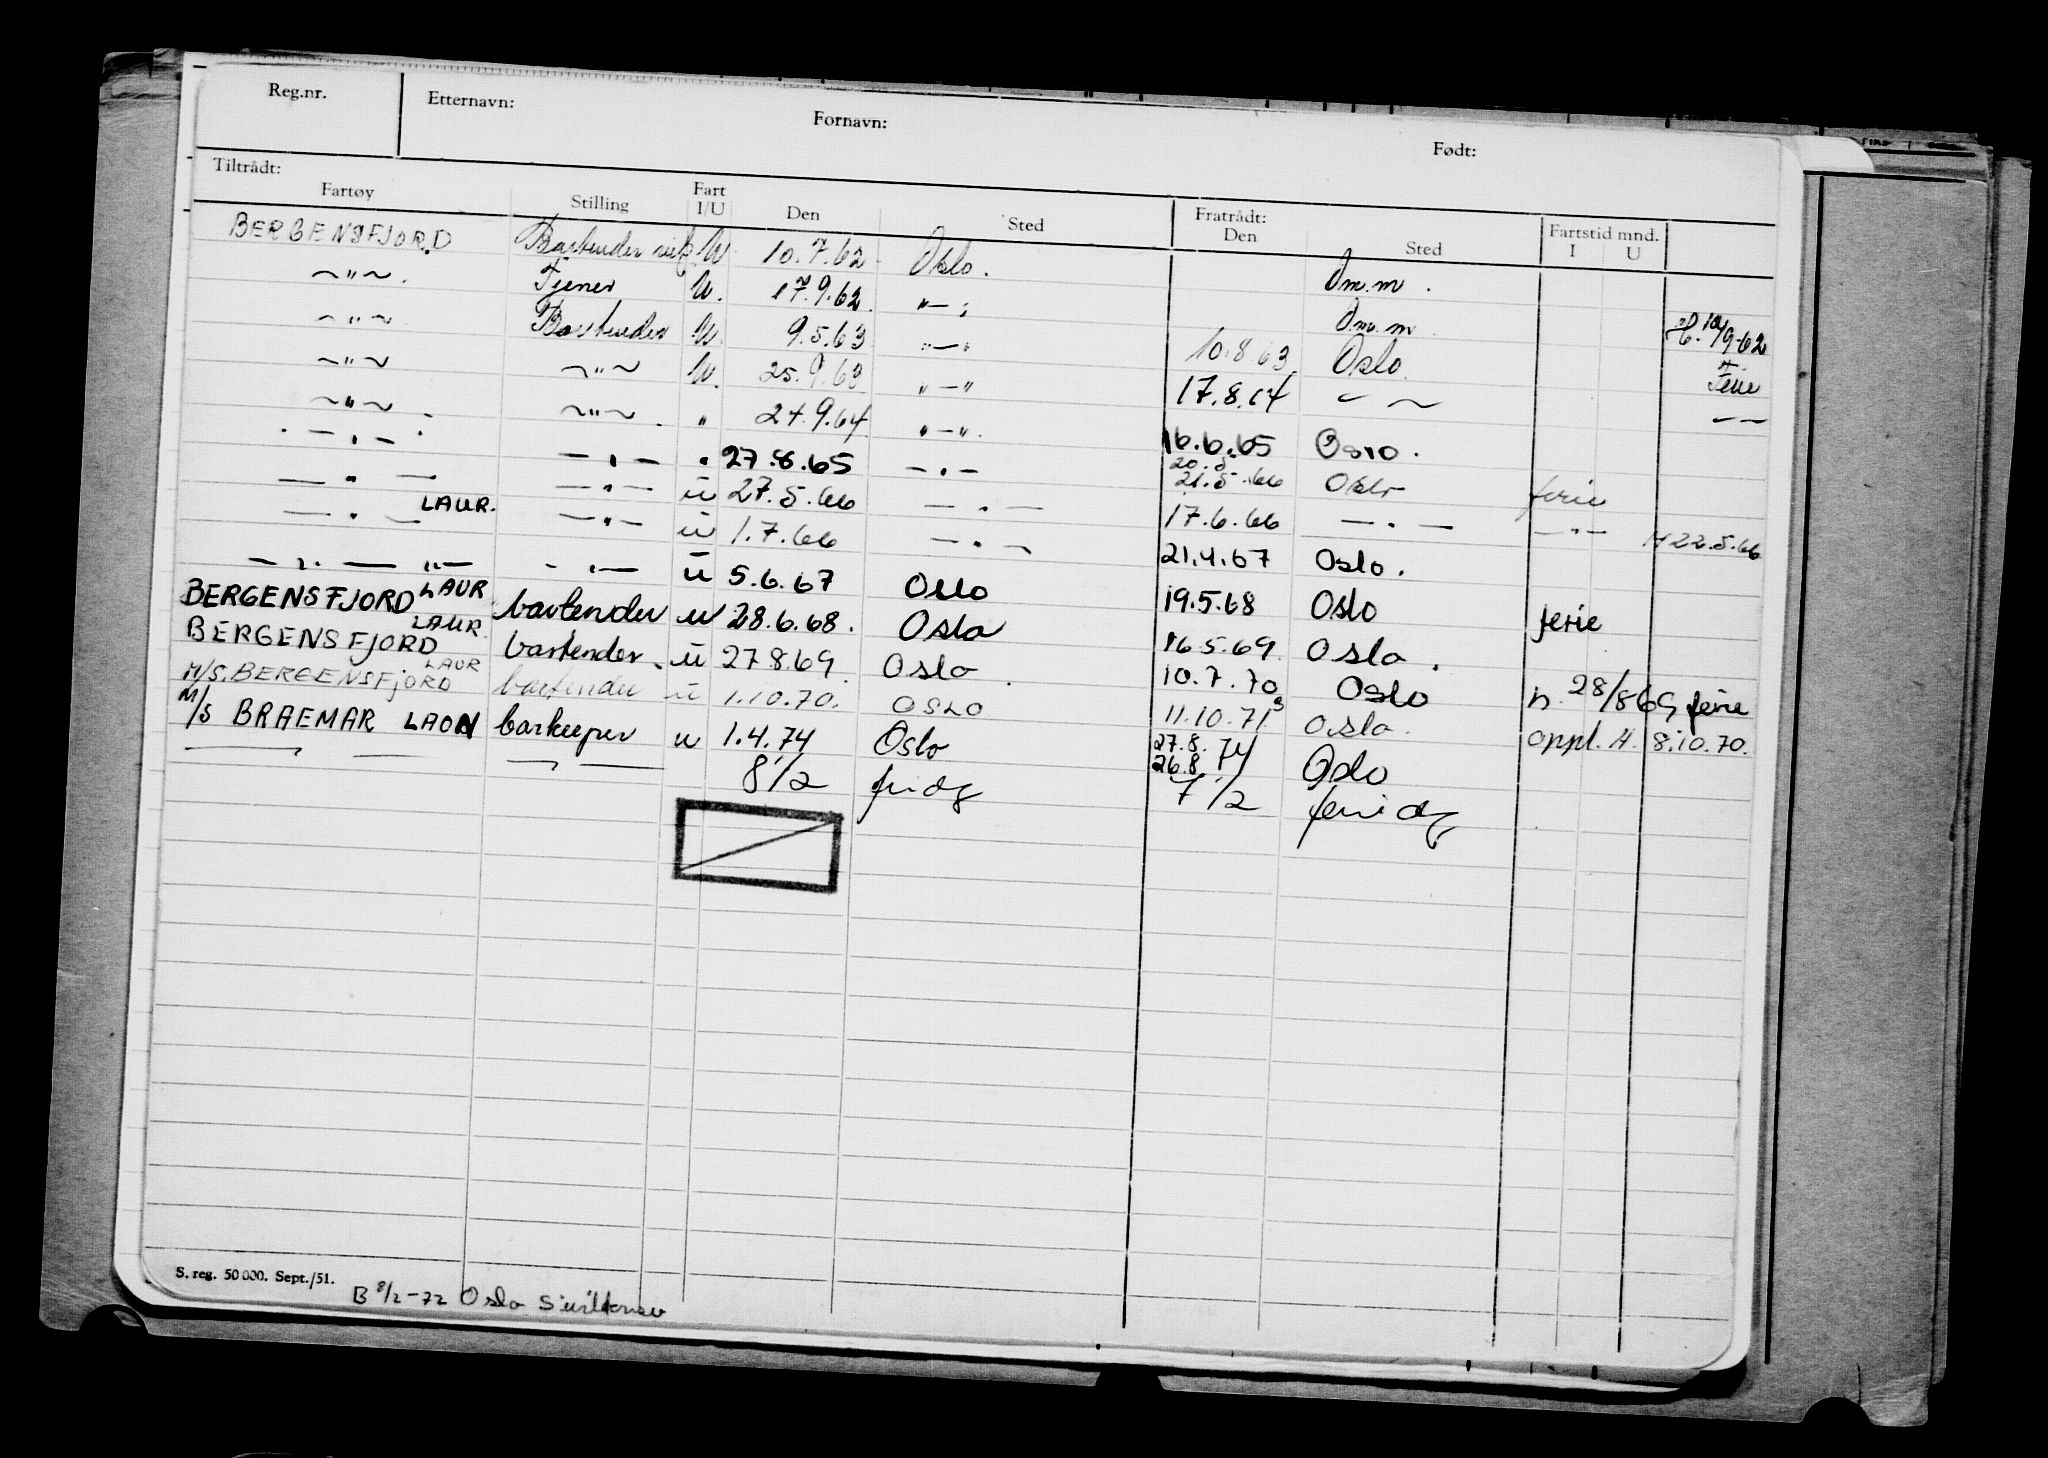 Reg.nr. Etternavn: Fornavn: Født:
Tiltrådt: Fratrådt:
Fartøy Stilling Fart I/U Den Sted Den Sted Fartstid mnd. I U
BERGENSFJORD Bartender U 10.7.62 Oslo. Om.m.
~"~. Tjener U. 17.9.62. "—; Om.m. 
~"~ Bartender U. 9.5.63 "—" 10.8.63 Oslo. Ferie
~"~ ~"~ U. 25.9.63 "—" 17.8.64 ~ ~ — —
~"~. ~"~. " 24.9.64 "—". 16.6.65 Oslo.
— " — — " — " 27.8.65 — " — 20.5 21.5.66 Oslo ferie
— " — — " — ü 27.5.66 — " — 17.6.66 — " — — " — H 22.5.66
— " — LAUR. — " — ü 1.7.66 — " — 21.4.67 Oslo.
— " — " — — " — ü 5.6.67 Oslo 19.5.68 Oslo ferie
BERGENSFJORD LAUR bartender u 28.6.68. Oslo 16.5.69 Oslo.
BERGENSFJORD LAUR. bartender. ü 27.8.69. Oslo. 10.7.70 Oslo h. 28/869 ferie
M/S. BERGENSFJORD LAUR bartender ü 1.10.70. OSLO 11.10.71 Oslo. oppl. H. 8.10.70.
M/S BRAEMAR LAON barkeeper u 1.4.74 Oslo 27.8. 26.8. 74 Oslo
— — — — 8 1/2 7 1/2
S. reg. 50 000. Sept./51.
B 8/2-72 Oslo